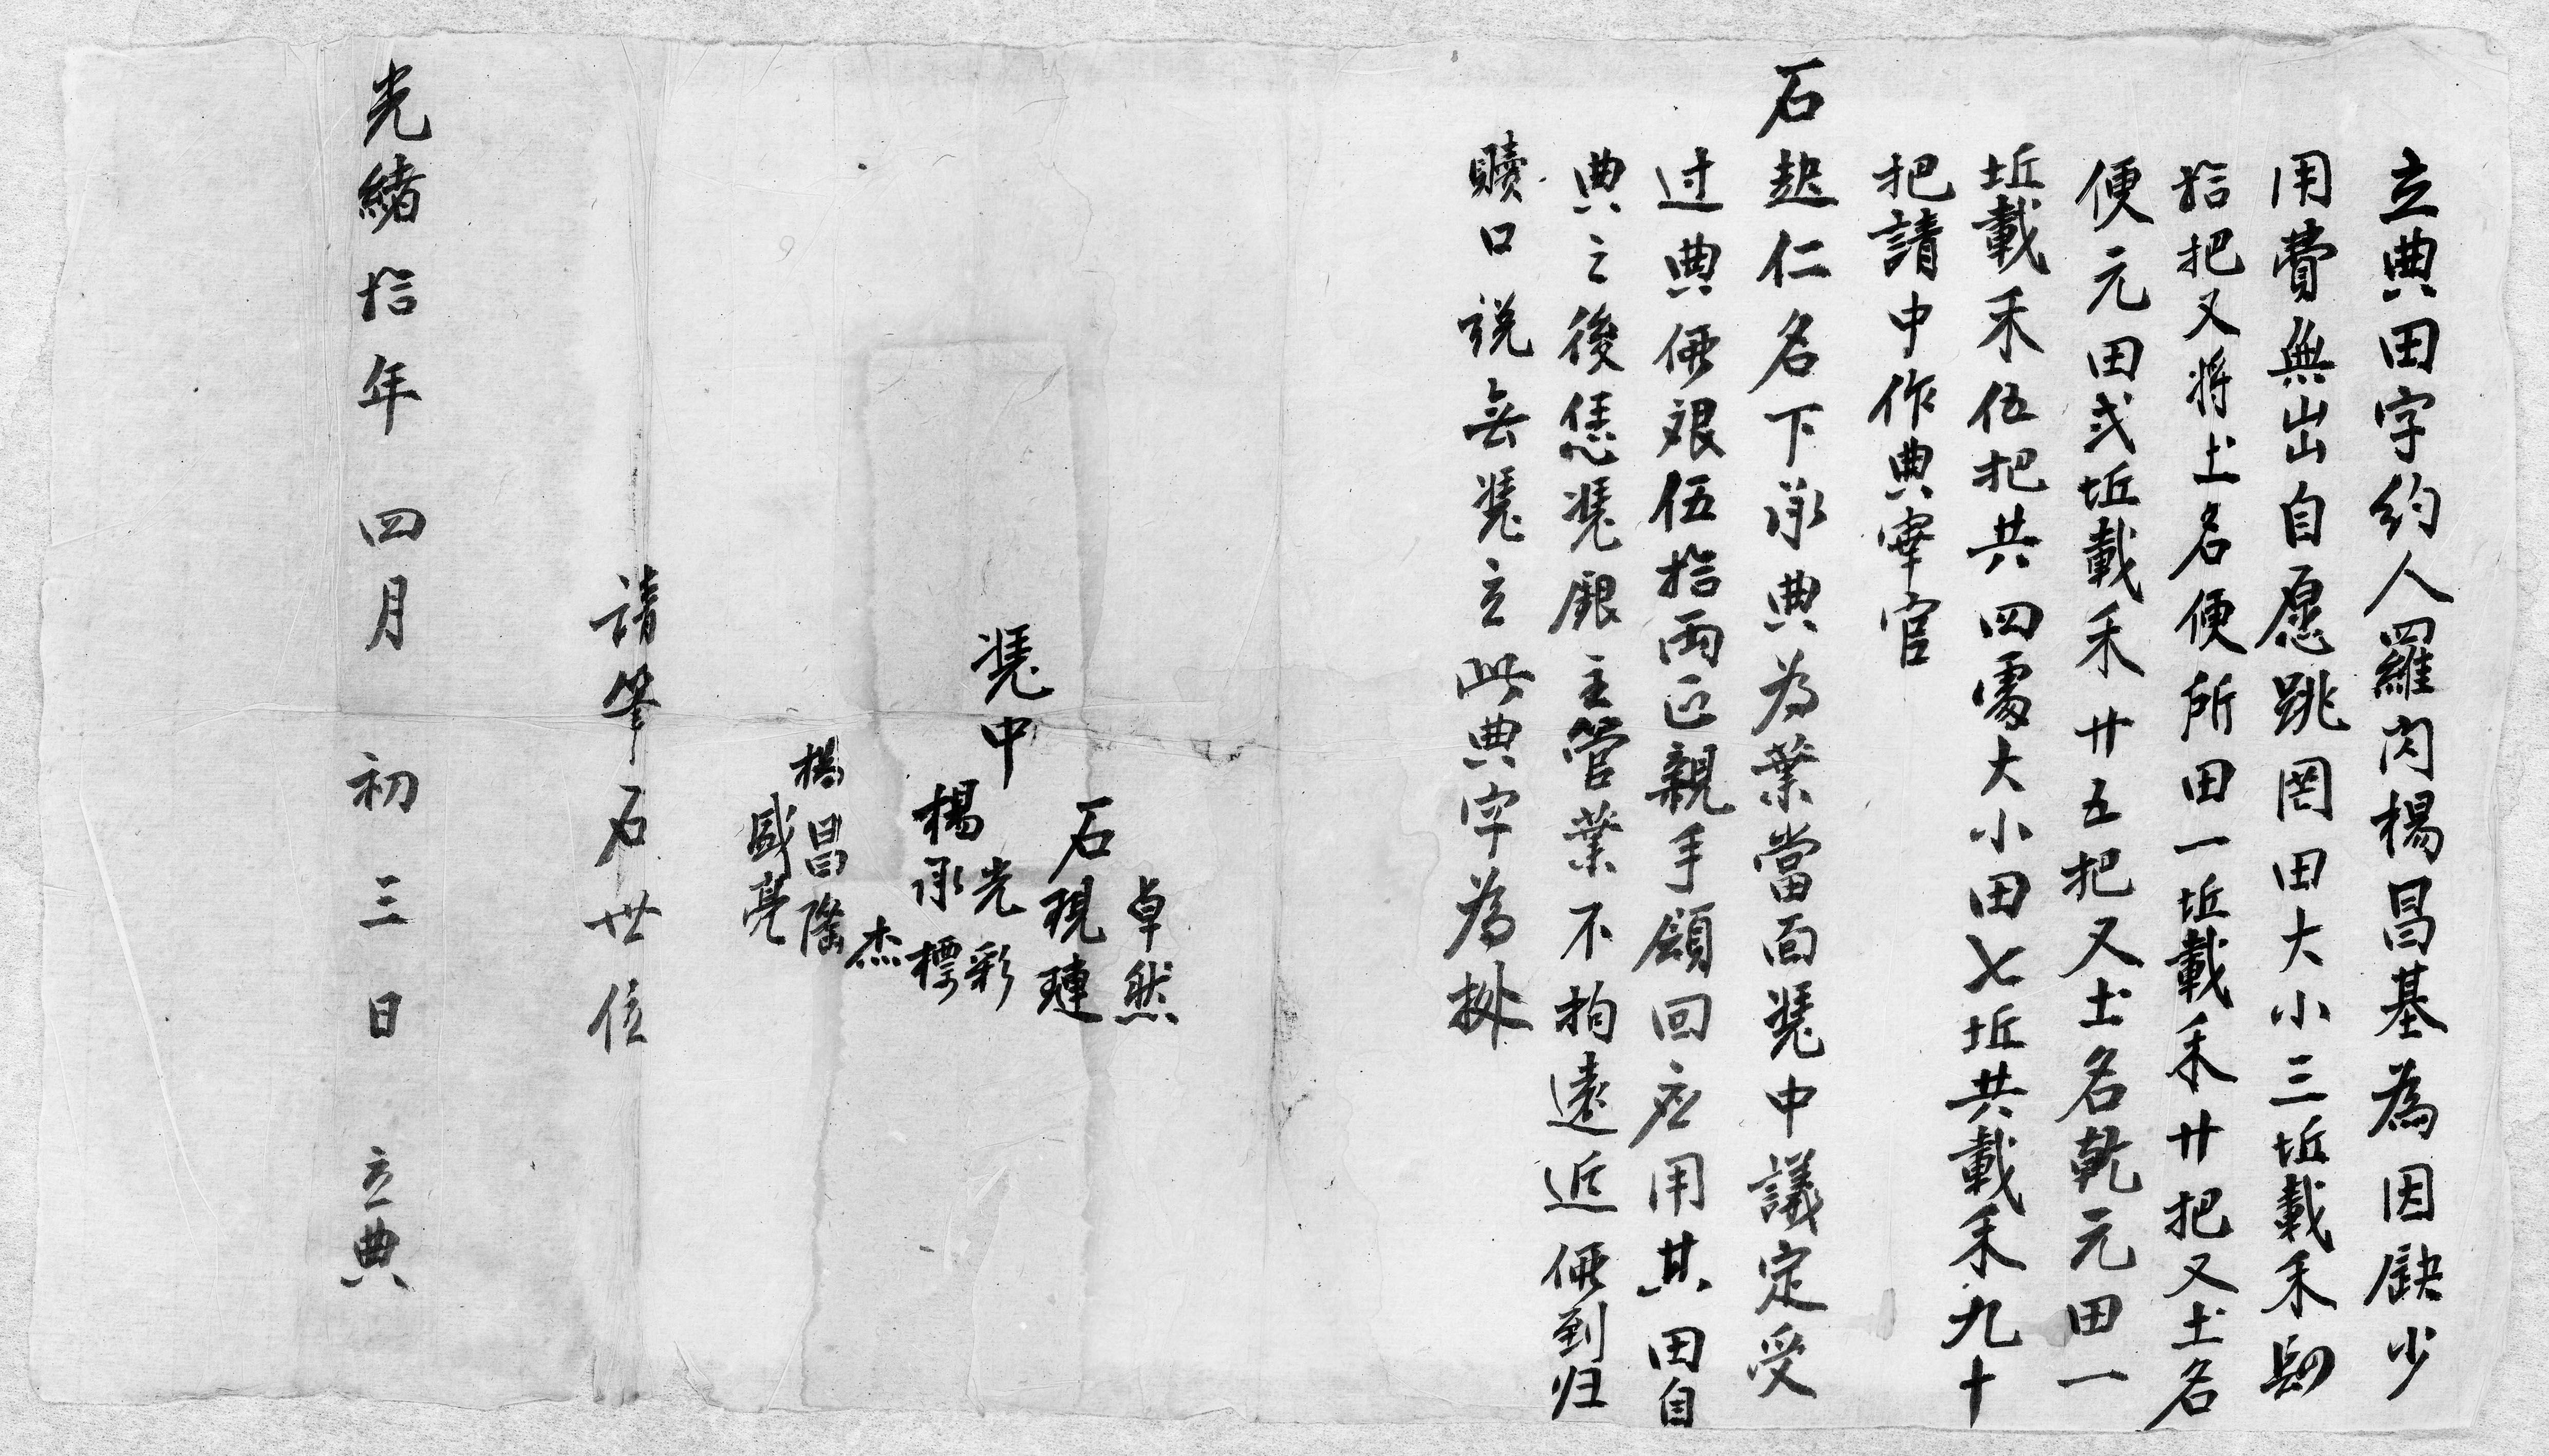 立典田字約人羅内楊昌基為因缺少
用費無出自愿跳罔田大小三坵載禾四
拾把又将土名便所田一坵載禾廿把又土名
便元田弍坵載禾廿五把又土名乾元田一
坵載禾伍把共四處大小田七坵共載禾九十
把請中作典寧官
石起仁名下承典為業當面凴中議定受
过典價艮伍拾両正親手領回应用其田自
典之後恁凴銀主管業不拘遠近價到归
贖口説無凴立此典字為㨿
卓然
石現璉
凴中
光彩
楊承標
杰
楊昌隆
盛亮
請筆石世位
光緒拾年四月初三日立典